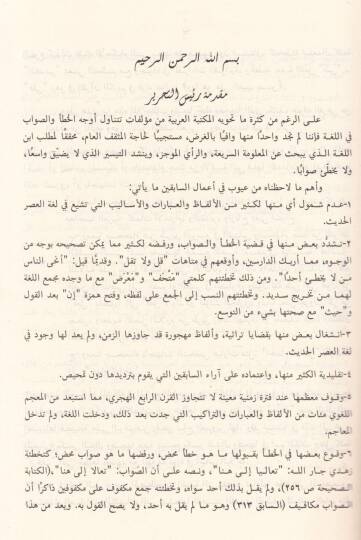 بسم الله الرحمن الرحيم
مقدمة رئيس التحرير
على الرغم من كثرة ما تحويه المكتبة العربية من مؤلفات تتناول أوجه الخطأ والصواب
في اللغة فإننا لم نجد واحدًا منها وافيًا بالغرض، مستجيبًا لحاجة المثقف العام، محققًا لمطلب ابن
اللغة الذي يبحث عن المعلومة السريعة، والرأي الموجز، وينشد التيسير الذي لا يضيّق واسعًا،
ولا يخطّئ صوابًا.
وأهم ما لاحظناه من عيوب في أعمال السابقين ما يأتي:
١-عدم شمول أي منها لكثير من الألفاظ والعبارات والأساليب التي تشيع في لغة العصر
الحديث.
٢-تشدُّد بعض منها في قضية الخطأ والصواب، ورفضه لكثير مما يمكن تصحيحه بوجه من
الوجوه، مما أربك الدارسين، وأوقعهم في متاهات "قل ولا تقل". وقديمًا قيل: "أنحى الناس
من لا يخطئ أحدًا". ومن ذلك تخطئتهم كلمتي "مَتْحَف" و"مَعْرَض" مع ما وجده مجمع اللغة
لهما من تخريج سديد. وتخطئتهم النسب إلى الجمع على لفظه، وفتح همزة "إن" بعد القول
و"حيث" مع صحتها بشيء من التوسع.
٣-انشغال بعضها بقضايا تراثية، وألفاظ مهجورة قد جاوزها الزمن، ولم يعد لها وجود في
لغة العصر الحديث.
٤-تقليدية الكثير منها، واعتماده على آراء السابقين التي يقوم بترديدها دون تمحيص.
٥-وقوف معظمها عند فترة زمنية معينة لا تتجاوز القرن الرابع الهجري، مما استبعد من المعجم
اللغوي مئات من الألفاظ والعبارات والتراكيب التي جدت بعد ذلك، ودخلت اللغة، ولم تدخل
المعاجم.
٦-وقوع بعضها في الخطأ بقبولها ما هو خطأ محض، ورفضها ما هو صواب محض؛ كتخطئة
زهدي جار الله: "تعاليا إلى هنا"، ونصه على أن الصواب: "تعالا إلى هنا"،(الكتابة
الصحيحة ص ٢٥٦)، ولم يقل بذلك أحد سواه، وتخطئته جمع مكفوف على مكفوفين ذاكرًا أن
الصواب مكافيف (السابق ٣١٣) وهو ما لم يقل به أحد، ولا يصح القول به. ويعد من هذا